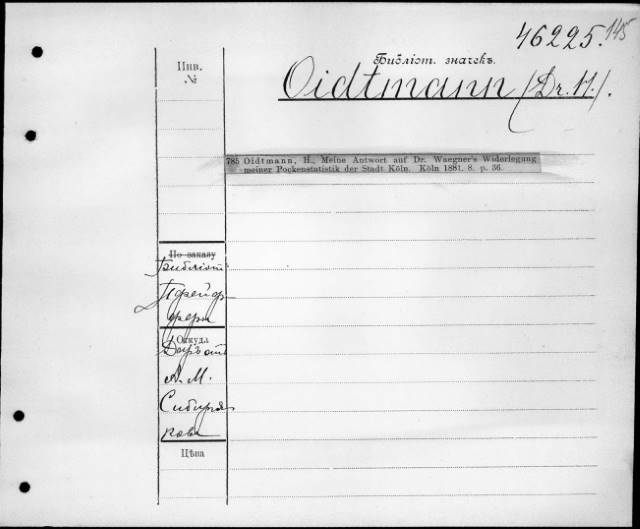 46225.145
Библіот. значекъ.
Инв.
№
Oidtmann (Dr. H.).
785 Oidtmann, H., Meine Antwort auf Dr. Waegner's Widerlegung
meiner Pockenstatistik der Stadt Köln. Köln 1881. 8. p. 36.
По заказу
Библіот.
Пфейф
фера
Откуда
Даръ отъ
А. М.
Сибиря
кова
Цѣна